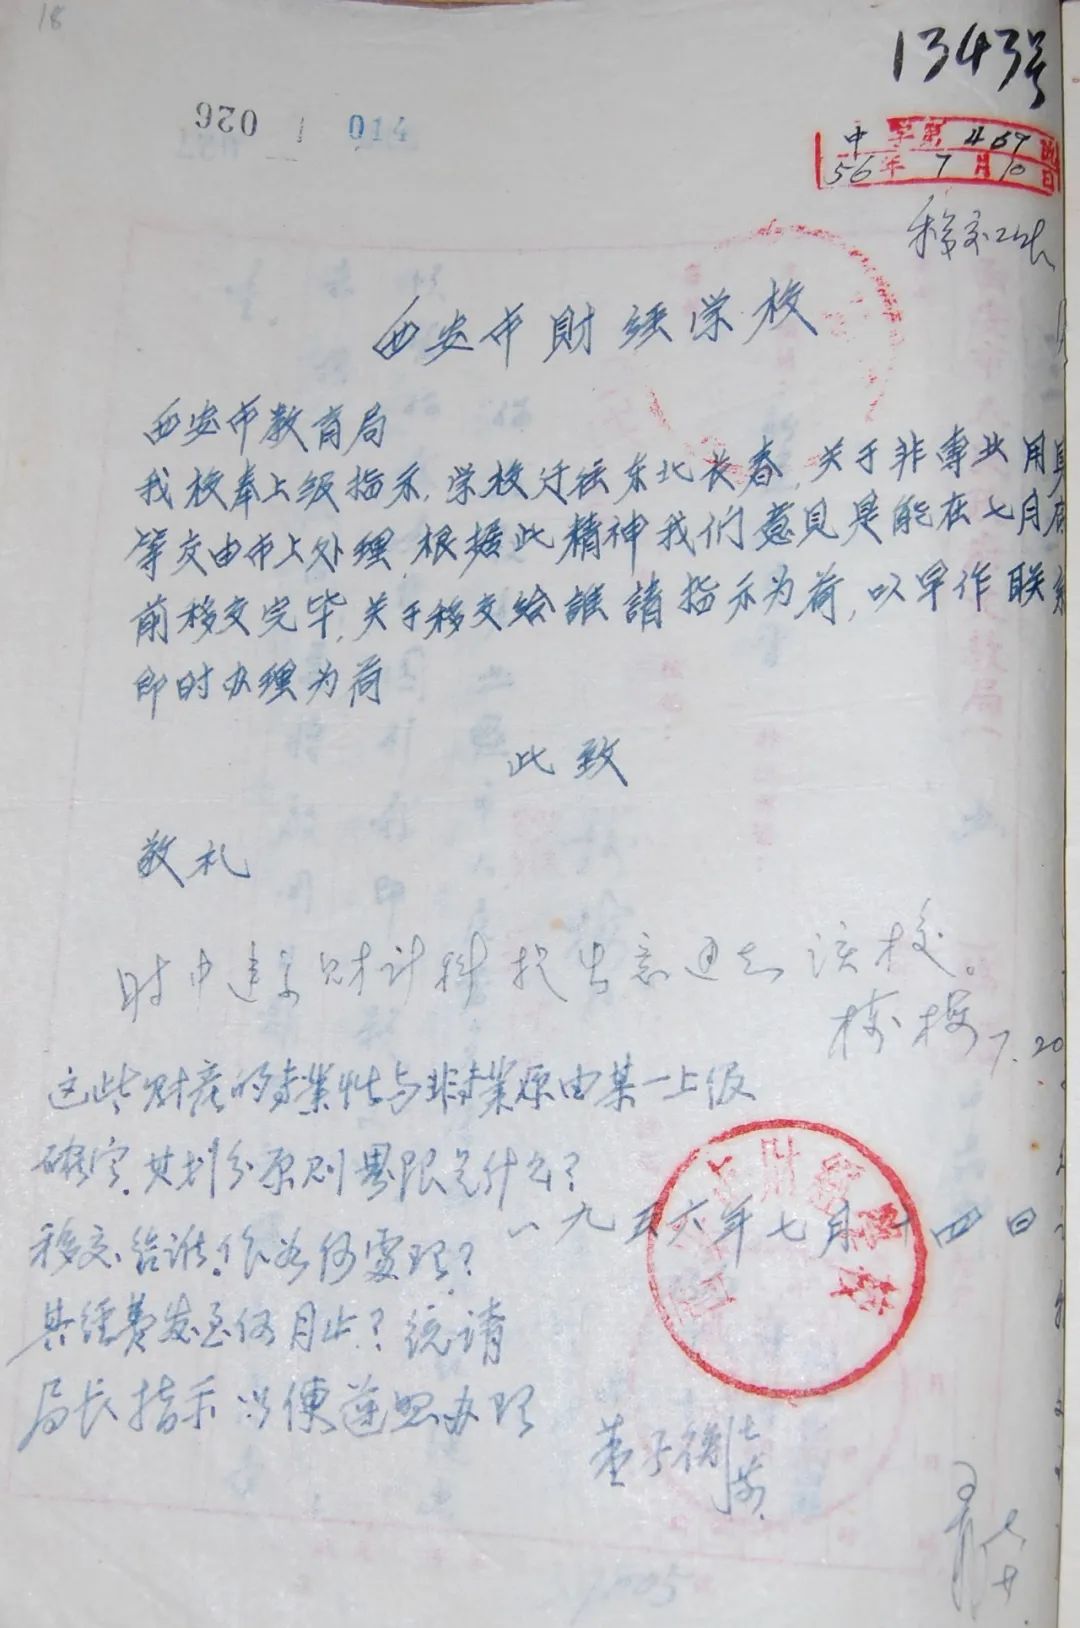 18
1343号
026 1 014
中 字第 467 号
56年 7月10日
西安市財经学校
西安市教育局
我校奉上级指示,学校迁往东北长春,关于非専业用具
等交由市上处理,根据此精神我们意见是能在七月底
前移交完毕,关于移交给誰請指示为荷,以早作联系
即时办理为荷
此致
敬礼
财计科提出意通知该校。
7.20
这些财产的专業性与非专業原由某一上级
确定,其划分原则界限是什么?
移交给谁,作为何處理?
其经费发至何月止?统请
局长指示以便遵照办理
一九五六年七月十四日
董子衡